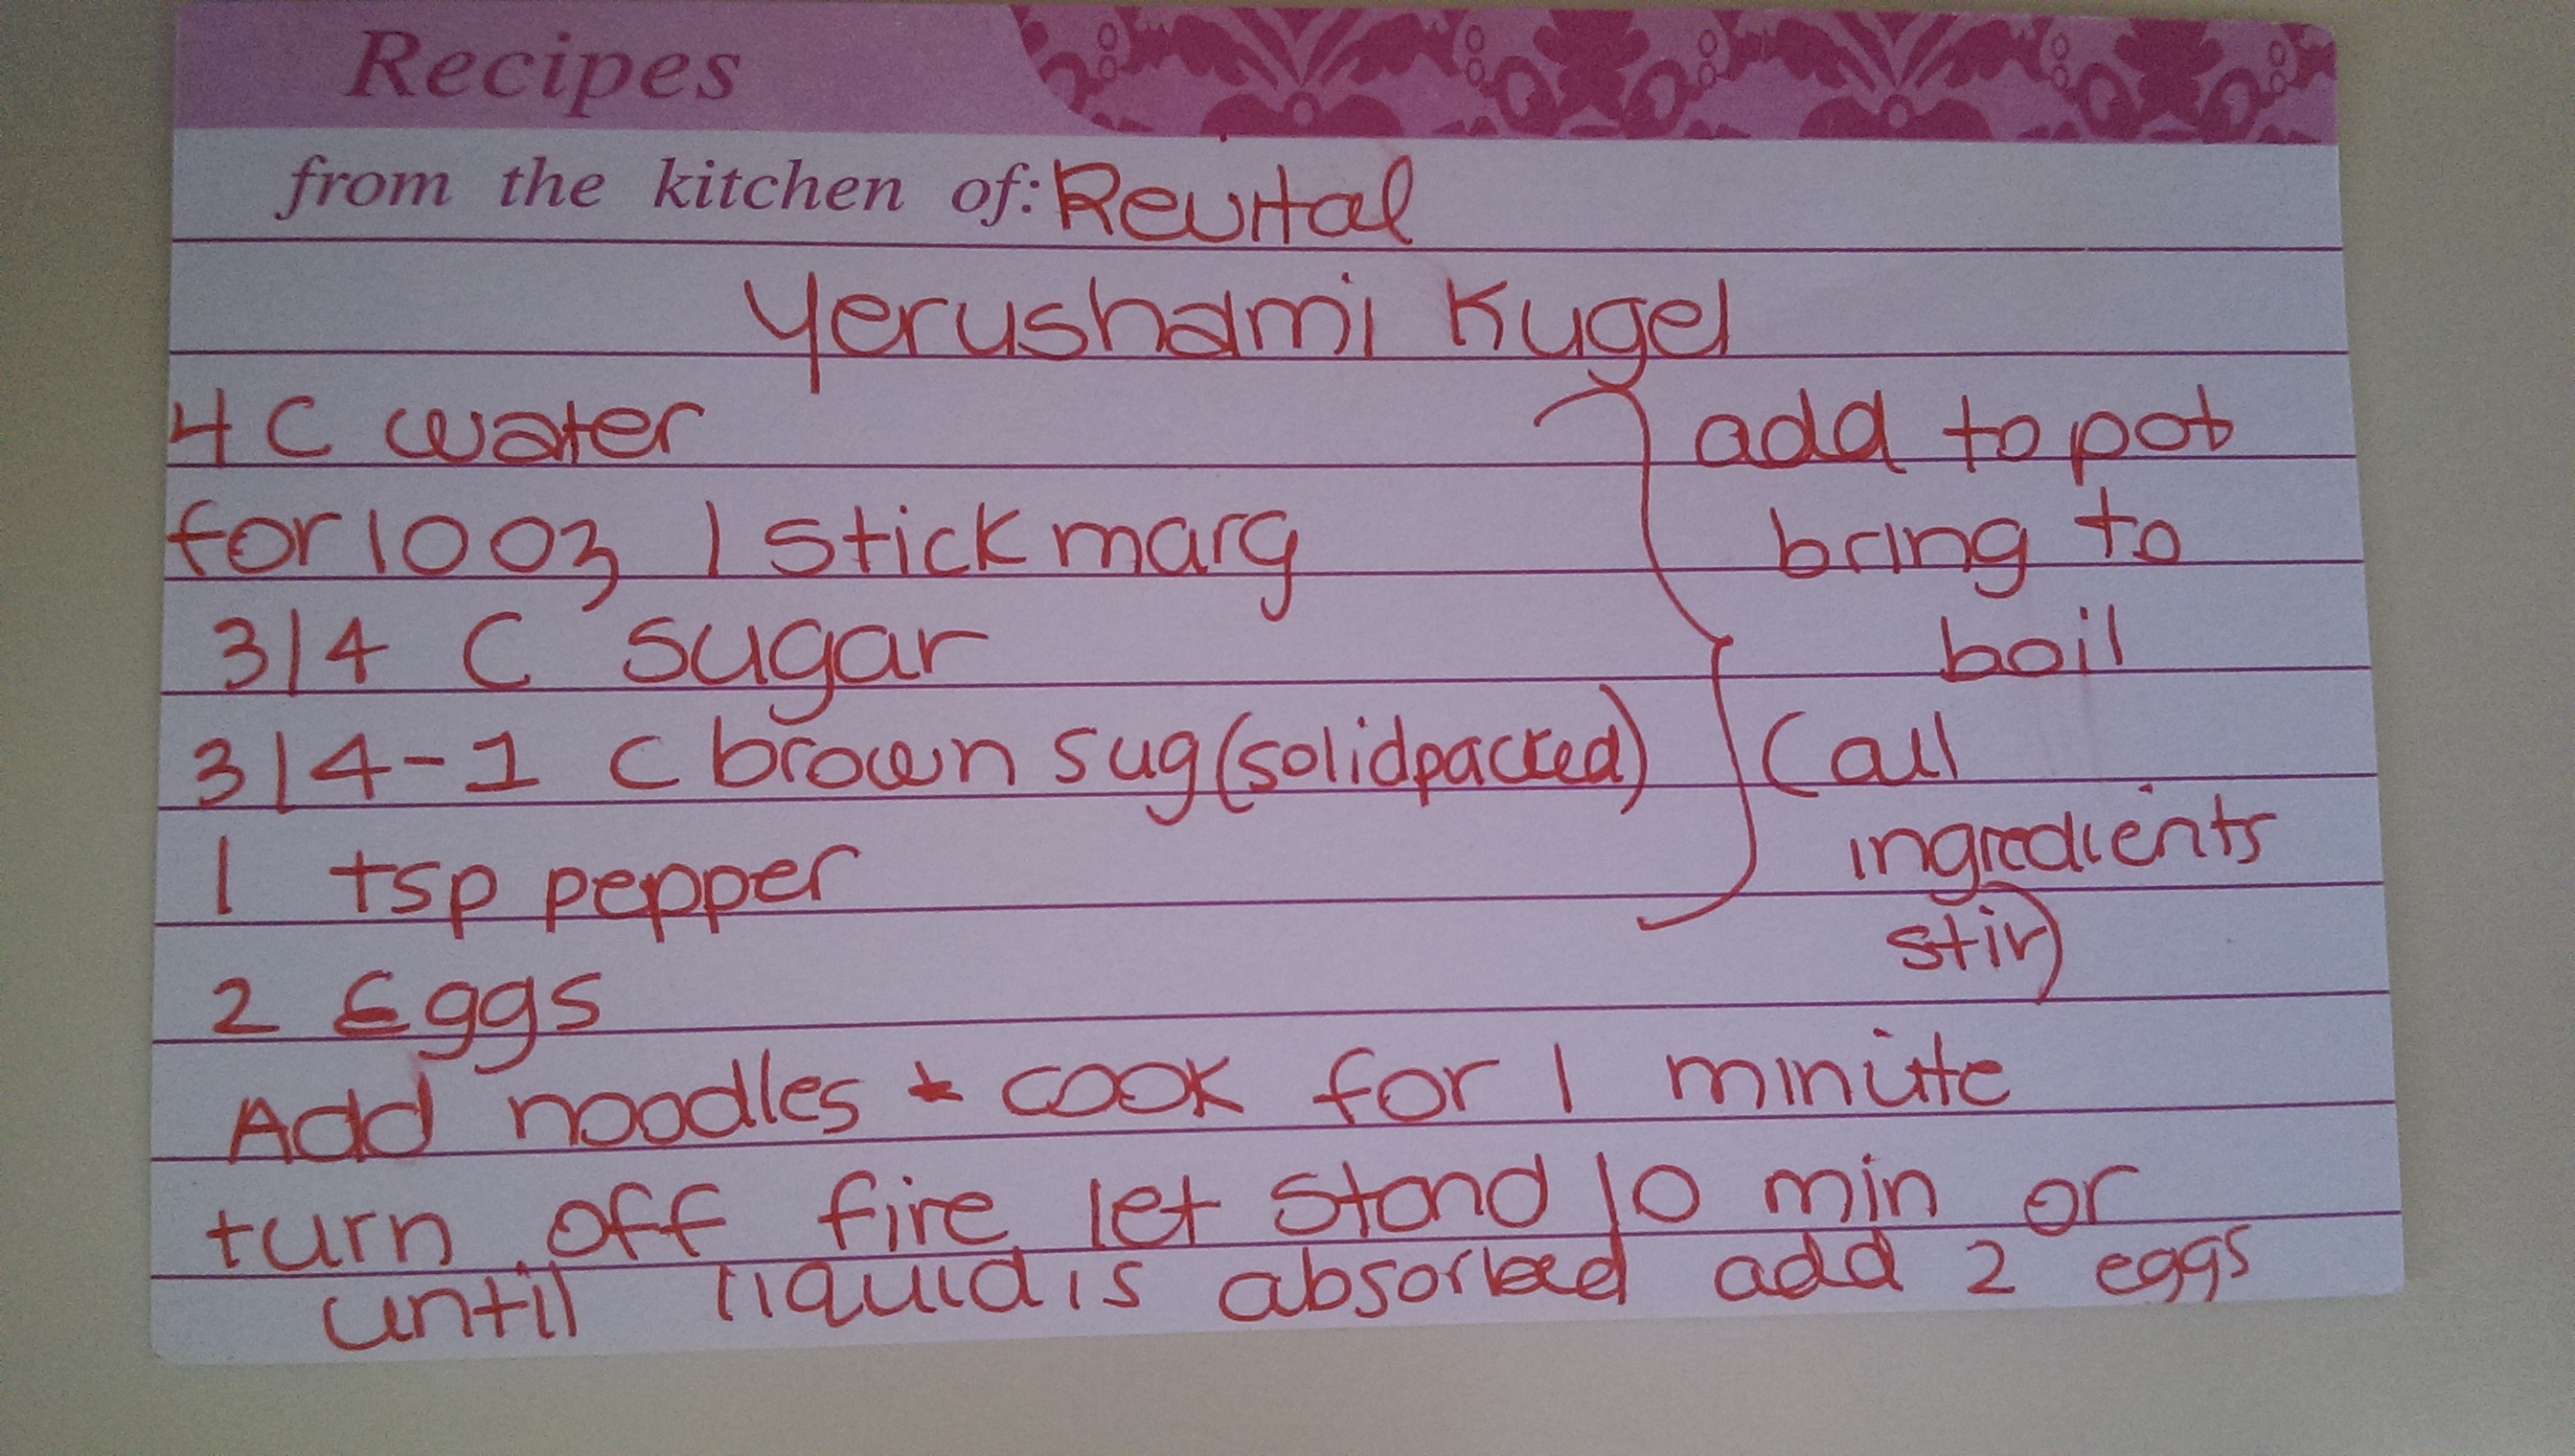 Recipes
from the kitchen of: Revital
Yerushami Kugel
4 C water
for 10 oz 1 stick marg
3/4 C sugar
3/4-1 C brown sug (solidpacked)
1 tsp pepper
add to pot
bring to
boil
(all
ingredients
stir)
2 Eggs
Add noodles + cook for 1 minute
turn off fire let stand 10 min or
until liquid is absorbed add 2 eggs